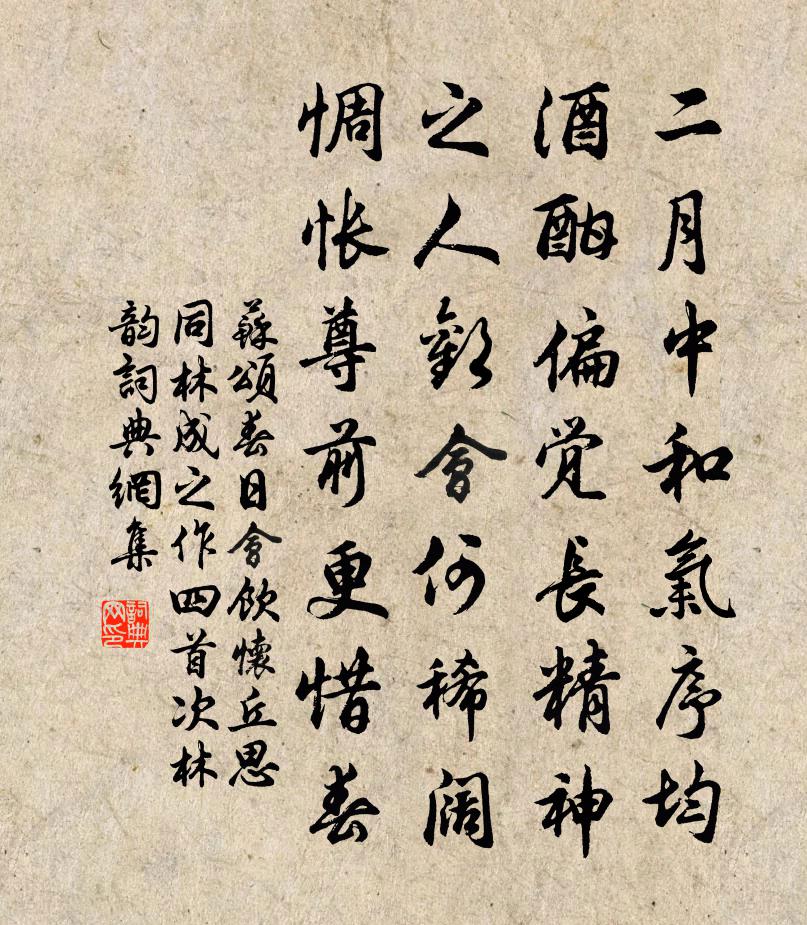 二月中和氣序均
酒酣偏觉長精神
之人歡會何稀阔
惆怅尊前更惜春
蘇頌春日會飲懷丘思
同林成之作四首次林
韵詞典網集
詞典
网印